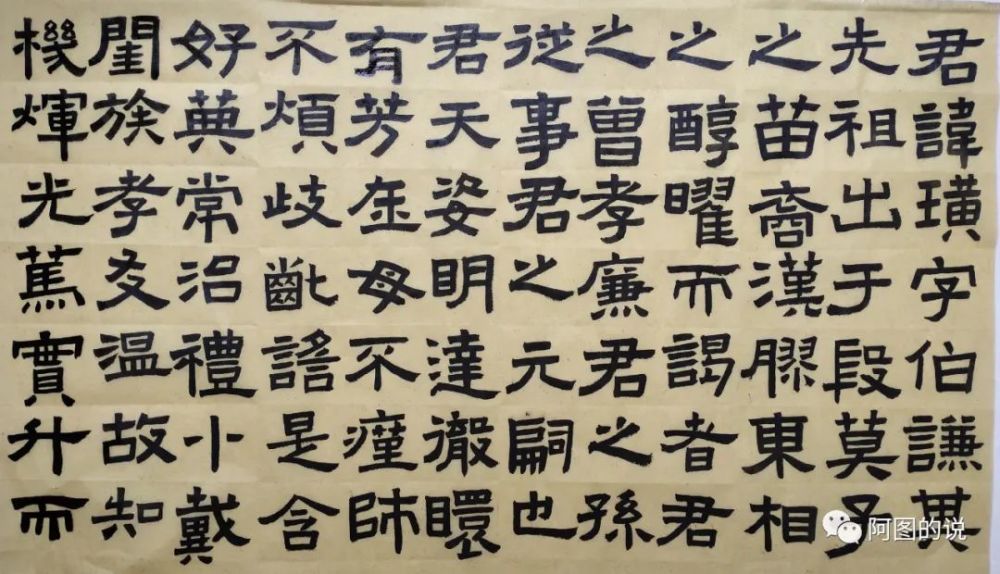 君諱璜字伯謙其
先祖出于段莫子
之苗裔漢膠東相
之醇曜而謁者君
之曾孝廉君之孫
從事君之元嗣也
君天姿眀達徹瞏
有芳在母不瘽師
不煩歧齔謠是含
好典常治禮小戴
閨族孝友溫故知
機煇光篤實升而
阿图的说